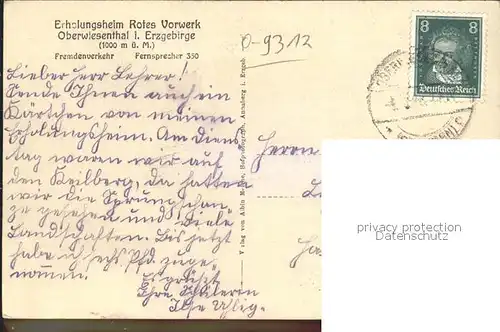 Erholungsheim Rotes Vorwerk
Oberwiesenthal i. Erzgebirge
(1000 m ü. M.)
Fremdenverkehr Fernsprecher 350
O-9312
8 8
Deutsches Reich
Lieber Herr Lehrer!
Sende Ihnen auch ein
Kärtchen von meinem
Erholungsheim. Am Diens
tag waren wir auf
den Keilberg, da hatten
wir die Sprungschan
ze gesehen und viele
Landschaften. Bis jetzt
habe ich sechs Pfd. zuge
nommen.
Es grüßt
Ihre Schülerin
Ilse Uhlig.
Verlag von Albin Hofphotograph, Annaberg i. Erzgeb.
Herrn
privacy protection
Datenschutz